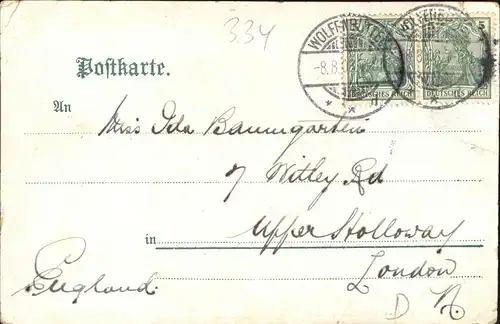 334
WOLFENBÜTTEL WOLFENB
5
-8.8.
DEUTSCHES REICH DEUTSCHES REICH
Postkarte.
An Miss Ida Baumgarten
7 Witley Rd
in Upper Holloway
London
England.
D N.